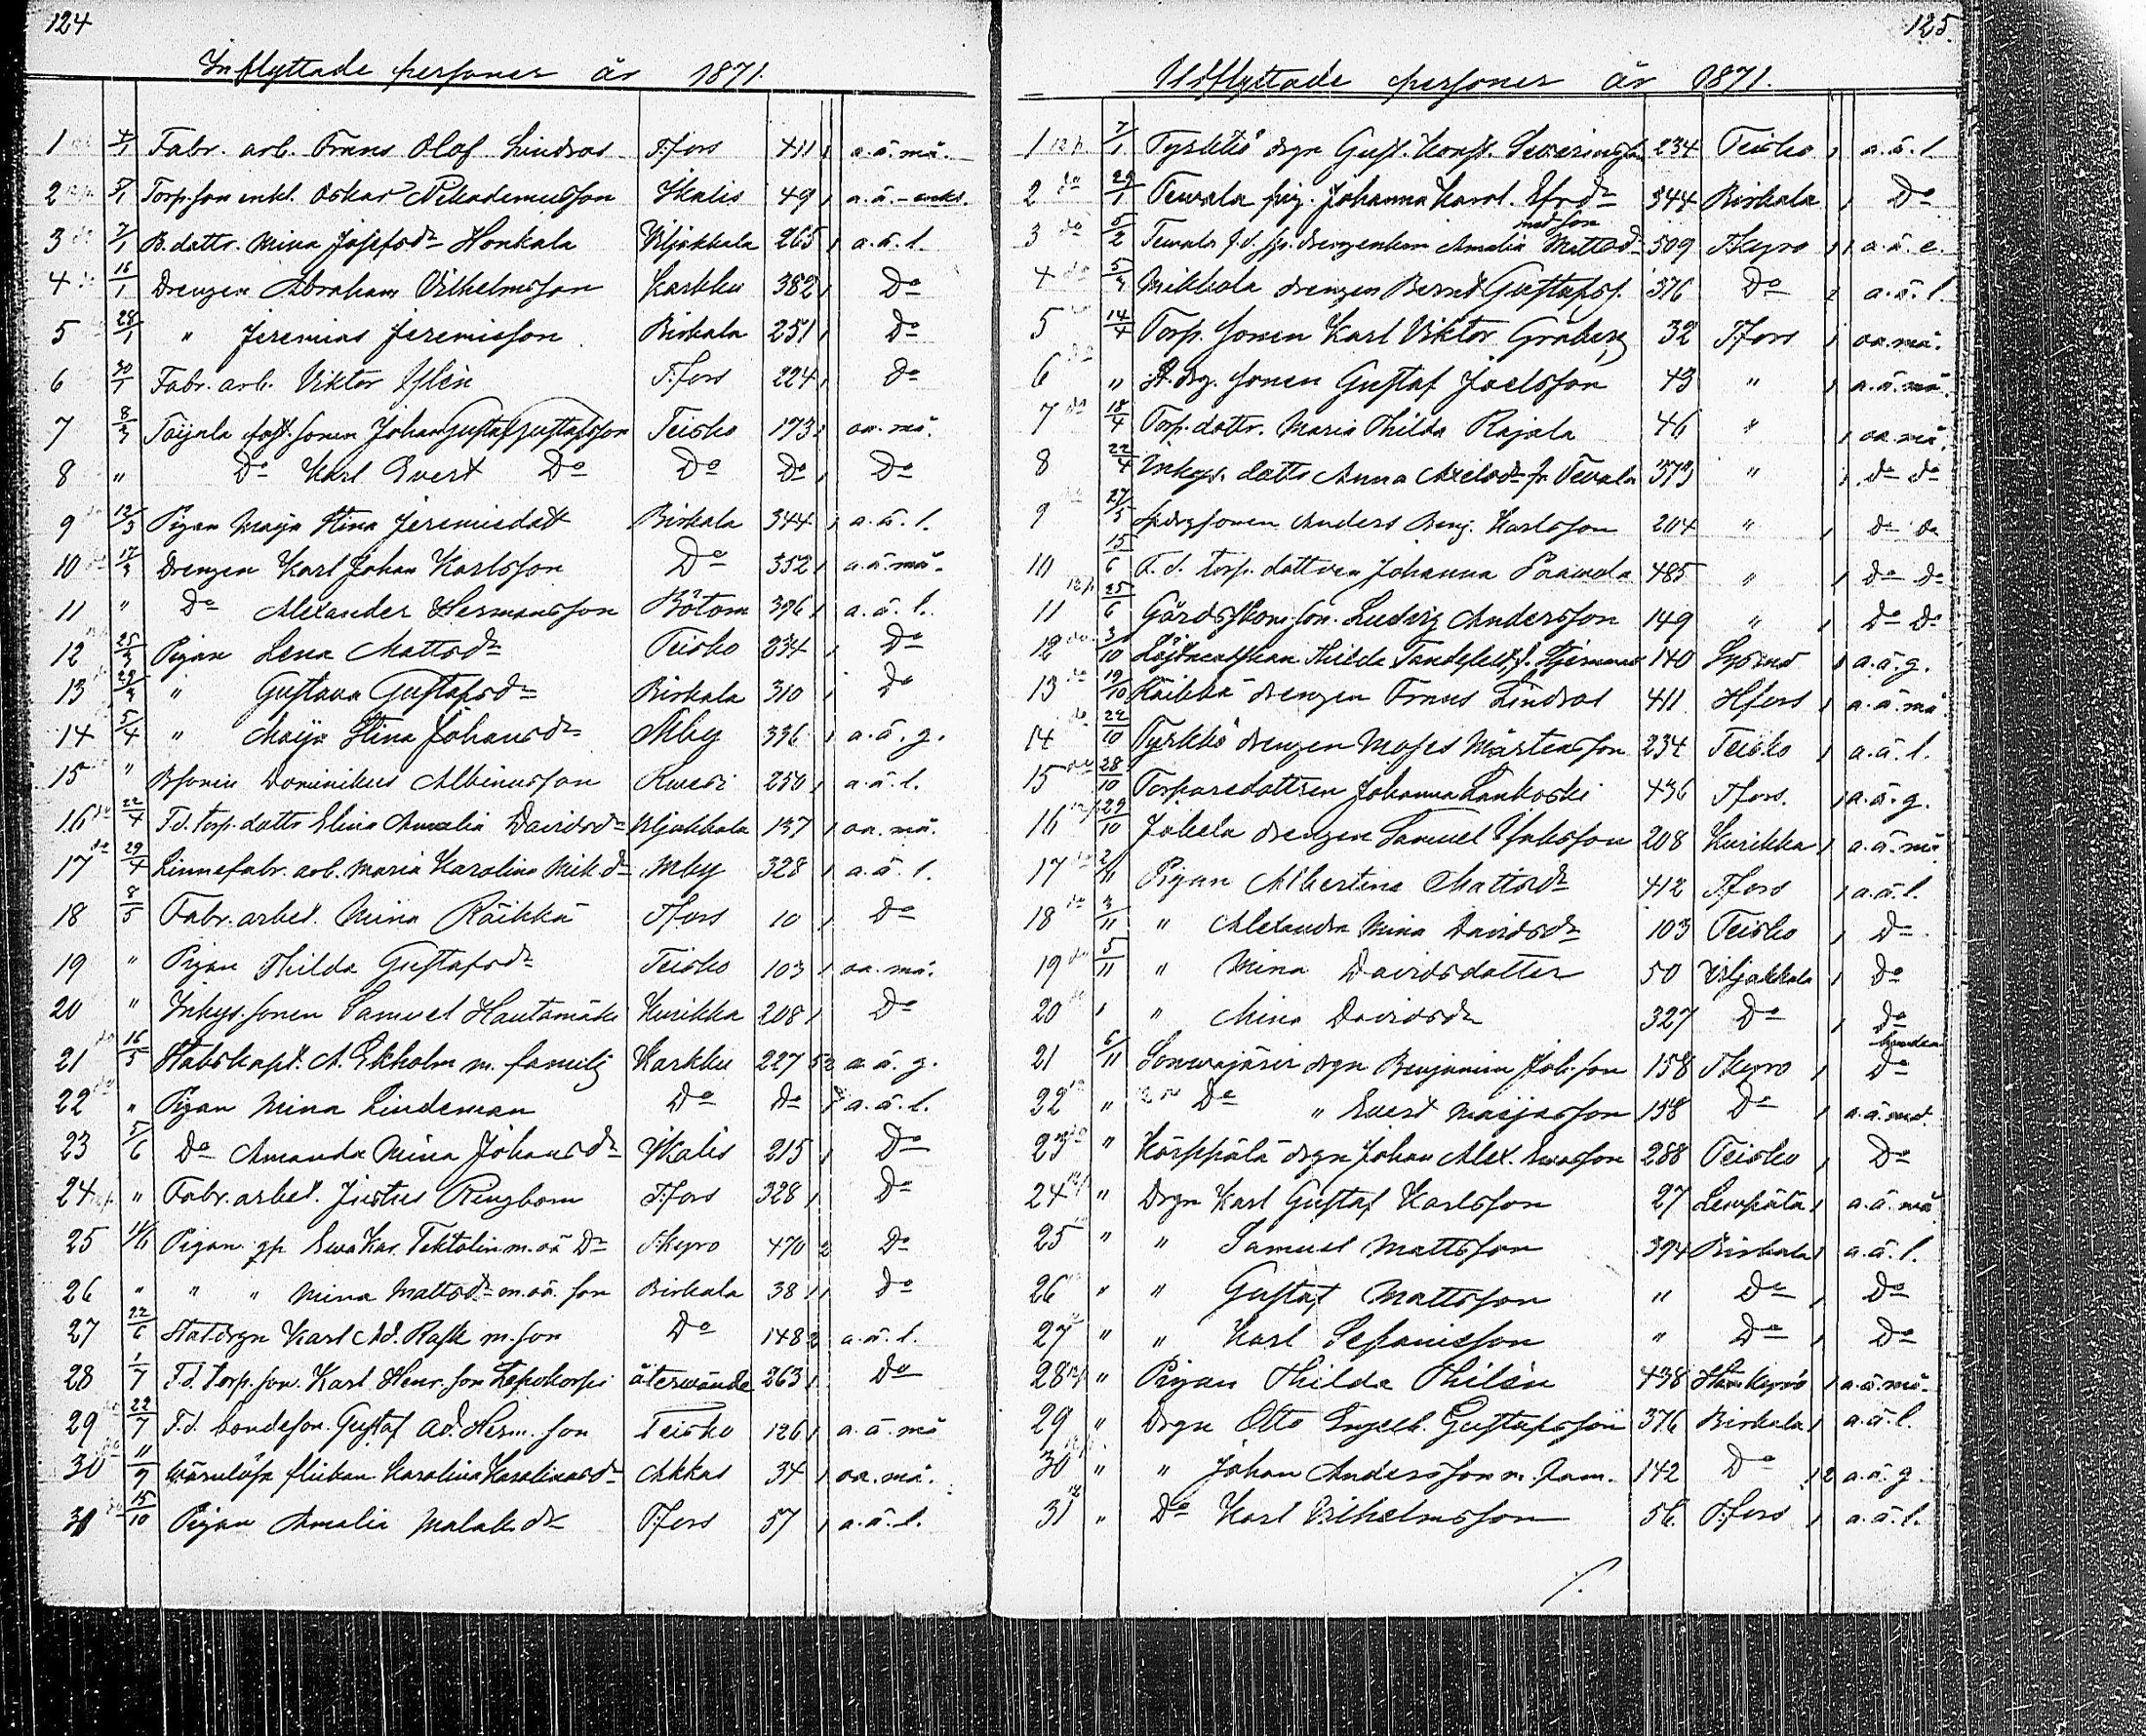 124
Inflyttade personer år 1871.
1 4/1 Fabr. arb. Frans Olof Lindros T.fors 411 1 a.ä. må.
2 5/1 Torp.son enkl. Oskar Nikodemusson Ikalis 49 1 a.ä.
3 do 7/1 B. dottr. Mina Josefsdr Honkala Viljakkala 265 1 a.ä. l.
4 do 16/1 Drengen Abraham Vilhelmsson Karkku 382 1 Do
5 28/1 " Jeremias Jeremiasson Birkala 251 1 Do
6 30/1 Fabr. arb. Viktor T.fors 224 1 Do
7 8/3 Taijala sonen Johan Gustaf Gustafsson Teisko 173 1 oa. må.
8 " Do Karl Evert Do Do Do 1 Do
9 12/3 Pigan Maija Stina Jeremiedott Birkala 344 1 a.ä. l.
10 17/3 Drengen Karl Johan Karlsson Do 352 1 a.ä. må.
11 " Do Alexander Hermansson Bötom 396 1 a.ä. l.
12 25/3 Pigan Lena Mattsdr Teisko 234 1 Do
13 29/3 " Gustava Gustafsdr Birkala 310 1 Do
14 5/4 " Maija Stina Johansdr Mby 396 1 a.ä. g.
15 " Bsonen Dominikus Albinusson Kuru 250 1 a.ä. l.
16 do 22/4 F.d. torp. dottr Elina Amalia Davidsdr Viljakkala 137 1 oa. må.
17 do 29/4 Linnefabr. arb. Maria Karolina Mik.dr Mby 328 1 a.ä. l.
18 8/5 Fabr. arbet. Mina Räikkä Tfors 10 1 Do
19 " Pigan Thilda Gustafsdr Teisko 103 1 oa. må.
20 " Inhys. sonen Samuel Hautamäki Kurikka 208 1 Do
21 16/5 Stabskapt. A. Ekholm m. familj Karkku 227 5 2 a.ä. g.
22 " Pigan Mina Lindeman Do Do 1 a.ä. l.
23 5/6 Do Amanda Mina Johansdr Ikalis 215 1 Do
24 " Fabr. arbet. Justus Ringbom T.fors 328 1 Do
25 11/6 Pigan gp Eva Kar. Tektolin m. oä Dr T.kyro 470 2 Do
26 " " " Mina Mattsdr m. oä. son Birkala 38 1 1 Do
27 22/6 Stat.drgn Karl Ad. Rask m. son Do 148 2 a.ä. l.
28 1/7 F.d. torp. son Karl Henr. son återwände 263 1 Do
29 22/7 F.d. bondeson. Gustaf Ad. Herm. son Teisko 126 1 a.ä. må
30 do 11/9 Wärnlösa flickan Karolina Karolinasdr Akkas 34 1 oa. må.
31 do 15/10 Pigan Amalia Malak.dr T.fors 57 1 a.ä. l.
125.
Utflyttade personer år 1871.
1 7/1 Tyrkkö drgn Gust. Konst. 234 Teisko 1 a.ä. l.
2 do 29/1 Tewala pig. Johanna Karol. 344 Birkala 1 Do
med son
3 do 5/2 Tewala f.d. Amalia Mattsdr 509 T.kyro 1 1 a.ä. e.
4 do 5/3 Mikkola drengen Bernd Gustafss. 376 Do 1 a.ä. l.
5 14/4 Torp. sonen Karl Viktor Gråberg 32 T.fors 1 oa. må.
6 do " sonen Gustaf Joelsson 43 " 1 a.ä. må.
7 do 18/4 Torp. dottr. Maria Thilda Rajala 46 " 1 oa. må.
8 22/4 Inhys. dottr Anna Axelsdr fr. Tevala 373 " 1 do do
9 27/5 sonen Anders Benj. Karlsson 204 " 1 do do
10 15/6 F.d. torp. dottren Johanna Paavola 485 " 1 do do
11 25/6 Ludvig Andersson 149 " 1 Do Do
12 do 3/10 Thilda Tandefelt f. 140 1 a.ä. g.
13 do 19/10 Räikkä drengen Frans Lindros 411 Hfors 1 a.ä. må
14 do 22/10 Tyrkkö drengen Moses Mårtensson 234 Teisko 1 a.ä. l.
15 28/10 Torparedottren Johanna Lankoski 436 T.fors. 1 a.ä. g.
16 29/10 Jakola drengen Samuel 208 Kurikka 1 a.ä. må
17 2/11 Pigan Albertina Mattsdr 412 T.fors 1 a.ä. l.
18 do 3/11 " Alexandra Mina Davidsdr 103 Teisko 1 Do
19 do 5/11 " Mina Davidsdotter 50 Viljakkala 1 Do
20 " " Mina Davidsdr 327 Do 1 Do
21 6/11 drgn Benjamin Joh.son 158 T.kyro 1 Do
22 " Do " Evert Maijasson 158 Do 1
23 " Körppälä drgn Johan Alex. 288 Teisko 1 Do
24 " Drgn Karl Gustaf Karlsson 27 Lempäälä 1 a.ä. må
25 " " Samuel Mattsson 394 Birkala 1 a.ä. l.
26 " " Gustaf Mattsson " Do 1 Do
27 " " Karl Stefanisson " Do 1 Do
28 " Pigan Thilda Thilén 438 1 a.ä. må.
29 " Drgn Otto Engelb. Gustafsson 376 Birkala 1 a.ä. l.
30 " " Johan Andersson m. fam. 142 Do 1 2 a.ä. g.
31 " Do Karl Vilhelmsson 56 T.fors 1 a.ä. l.